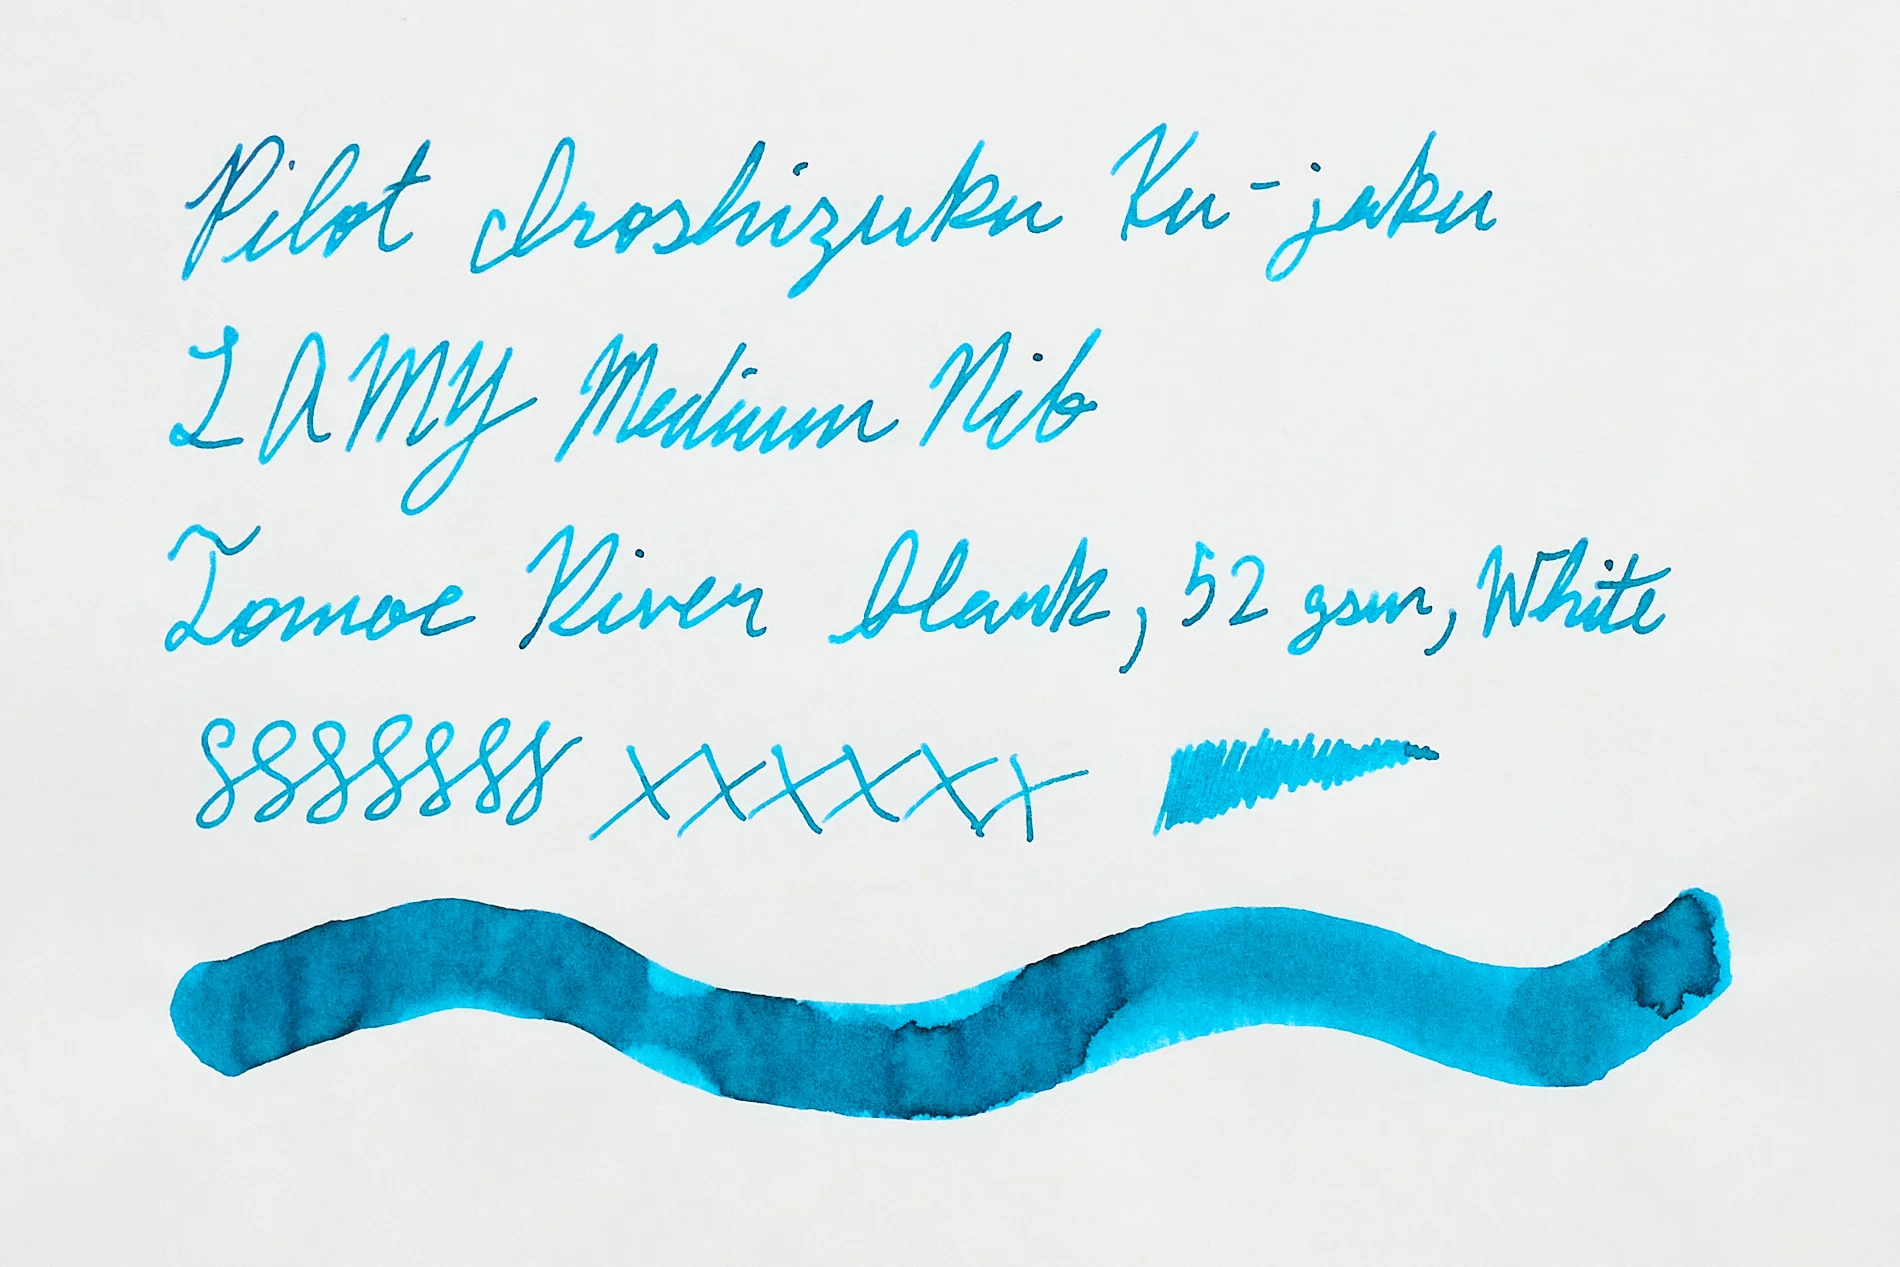 Pilot Iroshizuku Ku-jaku
LAMY Medium Nib
Tomoe River blank, 52 gsm, White